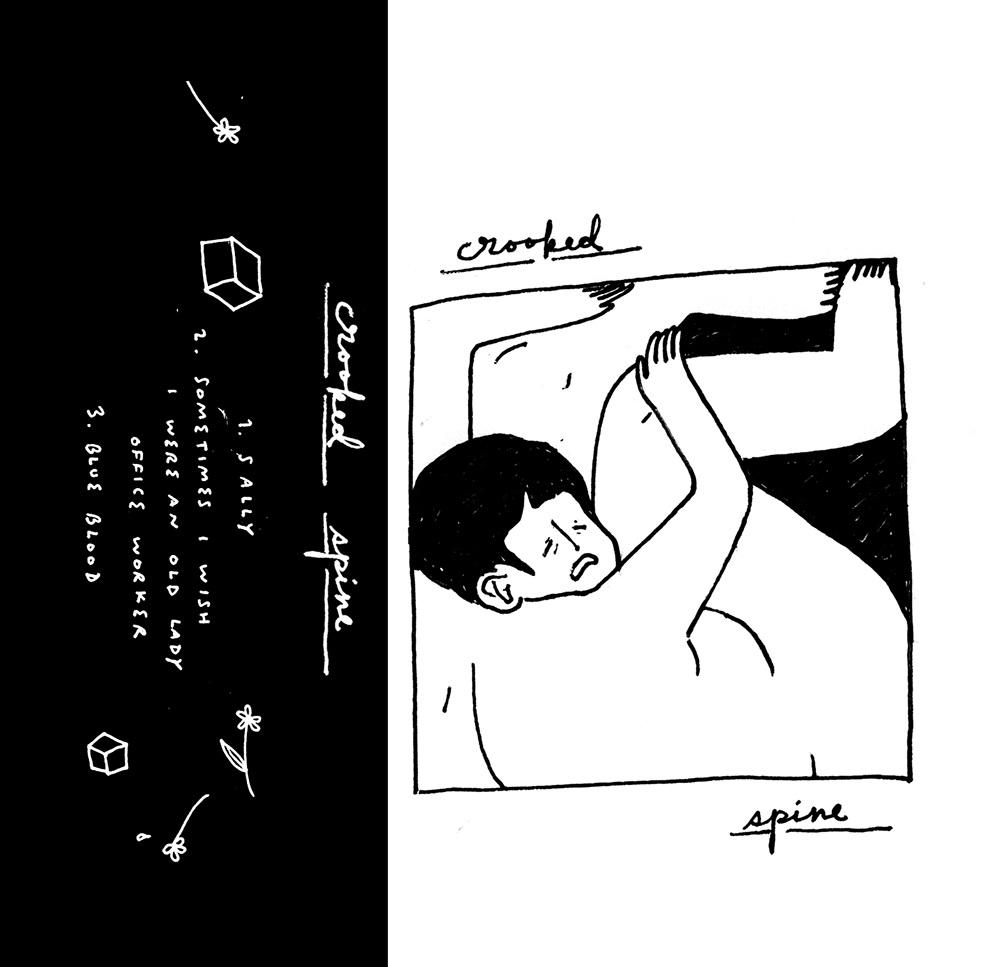 crooked spine
1. SALLY
2. SOMETIMES I WISH
I WERE AN OLD LADY
OFFICE WORKER
3. BLUE BLOOD
crooked
spine